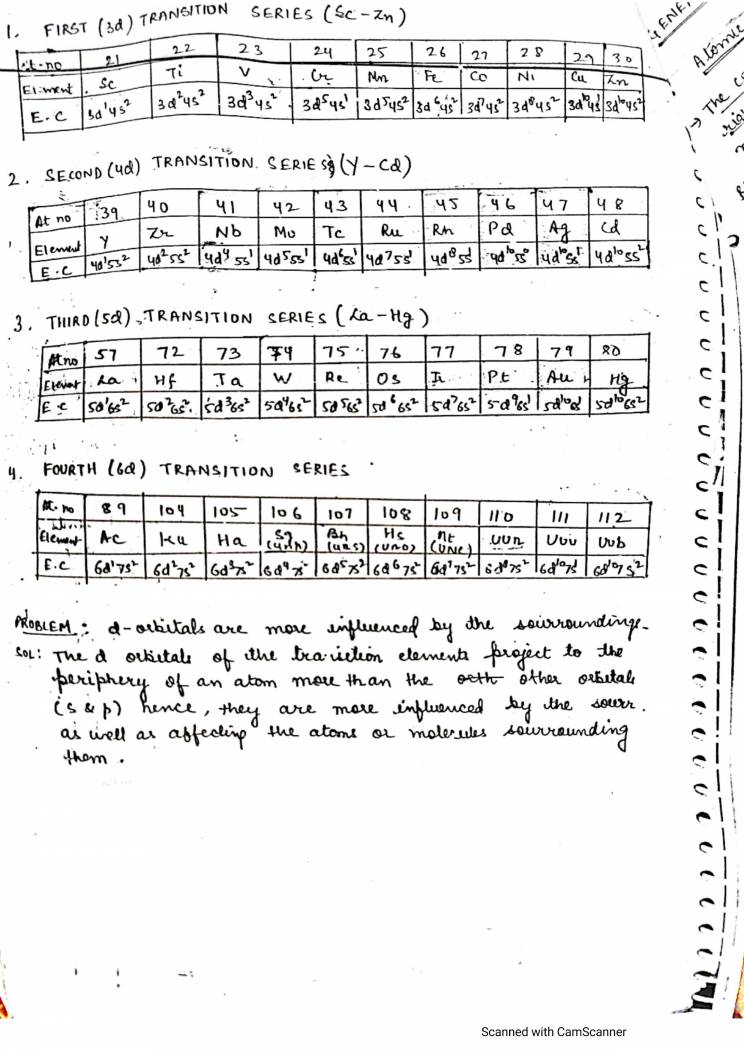 1. FIRST (3d) TRANSITION SERIES (Sc-Zn)
At. no 21 22 23 24 25 26 27 28 29 30
Element Sc Ti V Cr Mn Fe Co Ni Cu Zn
E.C 3d¹4s² 3d²4s² 3d³4s² 3d⁵4s¹ 3d⁵4s² 3d⁶4s² 3d⁷4s² 3d⁸4s² 3d¹⁰4s¹ 3d¹⁰4s²
2. SECOND (4d) TRANSITION SERIES (Y-Cd)
At no 39 40 41 42 43 44 45 46 47 48
Element Y Zr Nb Mo Tc Ru Rh Pd Ag Cd
E.C 4d¹5s² 4d²5s² 4d⁴5s¹ 4d⁵5s¹ 4d⁶5s¹ 4d⁷5s¹ 4d⁸5s¹ 4d¹⁰5s⁰ 4d¹⁰5s¹ 4d¹⁰5s²
3. THIRD (5d) TRANSITION SERIES (La-Hg)
At no 57 72 73 74 75 76 77 78 79 80
Element La Hf Ta W Re Os Ir Pt Au Hg
E.C 5d¹6s² 5d²6s² 5d³6s² 5d⁴6s² 5d⁵6s² 5d⁶6s² 5d⁷6s² 5d⁹6s¹ 5d¹⁰6s¹ 5d¹⁰6s²
4. FOURTH (6d) TRANSITION SERIES
At. no 89 104 105 106 107 108 109 110 111 112
Element Ac Ku Ha Sg (Unh) Bh (Uns) Hs (Uno) Mt (Une) Uun Uuu Uub
E.C 6d¹7s² 6d²7s² 6d³7s² 6d⁴7s² 6d⁵7s² 6d⁶7s² 6d⁷7s² 6d⁸7s² 6d¹⁰7s¹ 6d¹⁰7s²
PROBLEM: d-orbitals are more influenced by the sourroundings.
SOL: The d orbitals of the transition elements project to the
periphery of an atom more than the other orbitals
(s & p) hence, they are more influenced by the sourr.
as well as affecting the atoms or molecules sourrounding
them.
Atomic
→ The
Scanned with CamScanner